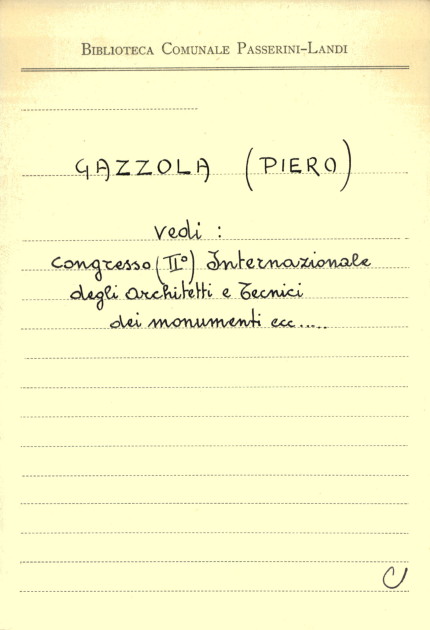 BIBLIOTECA COMUNALE PASSERINI-LANDI
GAZZOLA (PIERO)
vedi :
Congresso (II°) Internazionale
degli architetti e Tecnici
dei monumenti ecc.....